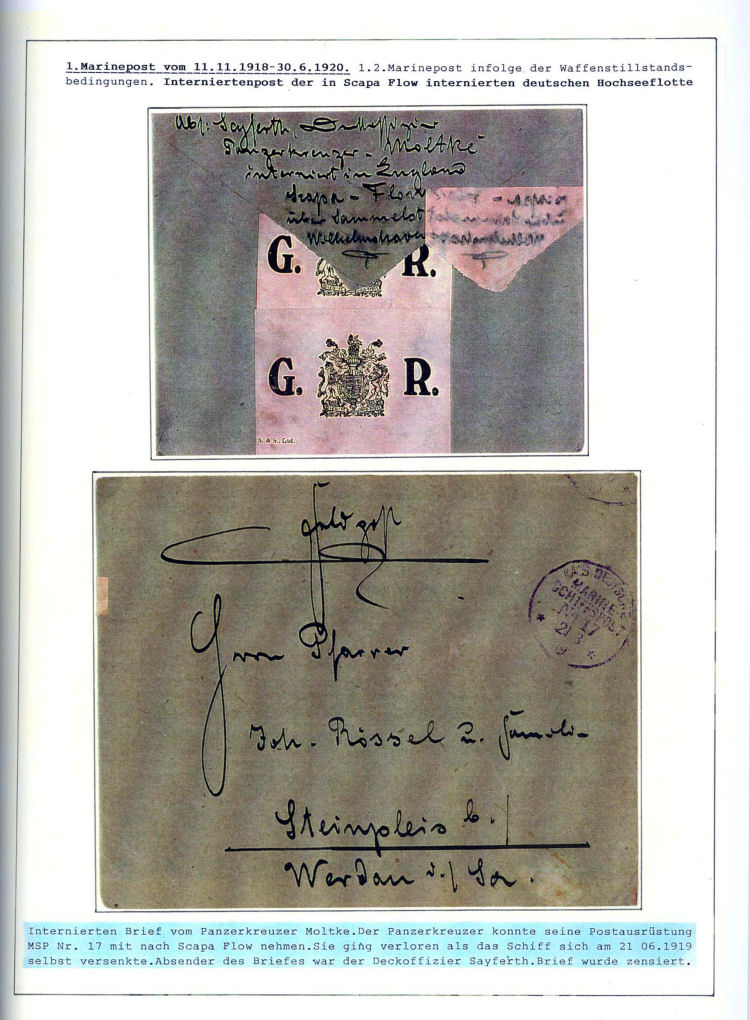 1.Marinepost vom 11.11.1918-30.6.1920. 1.2.Marinepost infolge der Waffenstillstands-
bedingungen. Interniertenpost der in Scapa Flow internierten deutschen Hochseeflotte
Abs: Sayferth, Deckoffizier
Panzerkreuzer - "Moltke"
interniert in England
Scapa - Flow
über Sammelst
Wilhelmshaven
G. R.
G. R.
S. & S., Ltd.
Feldpost
MARINE-
SCHIFFSPOST
No 17
21 3
19
Herrn Pfarrer
Joh. Rössel u. Familie
Steinpleis b./
Werdau i./ Sa.
Internierten Brief vom Panzerkreuzer Moltke.Der Panzerkreuzer konnte seine Postausrüstung
MSP Nr. 17 mit nach Scapa Flow nehmen.Sie ging verloren als das Schiff sich am 21 06.1919
selbst versenkte.Absender des Briefes war der Deckoffizier Sayferth.Brief wurde zensiert.